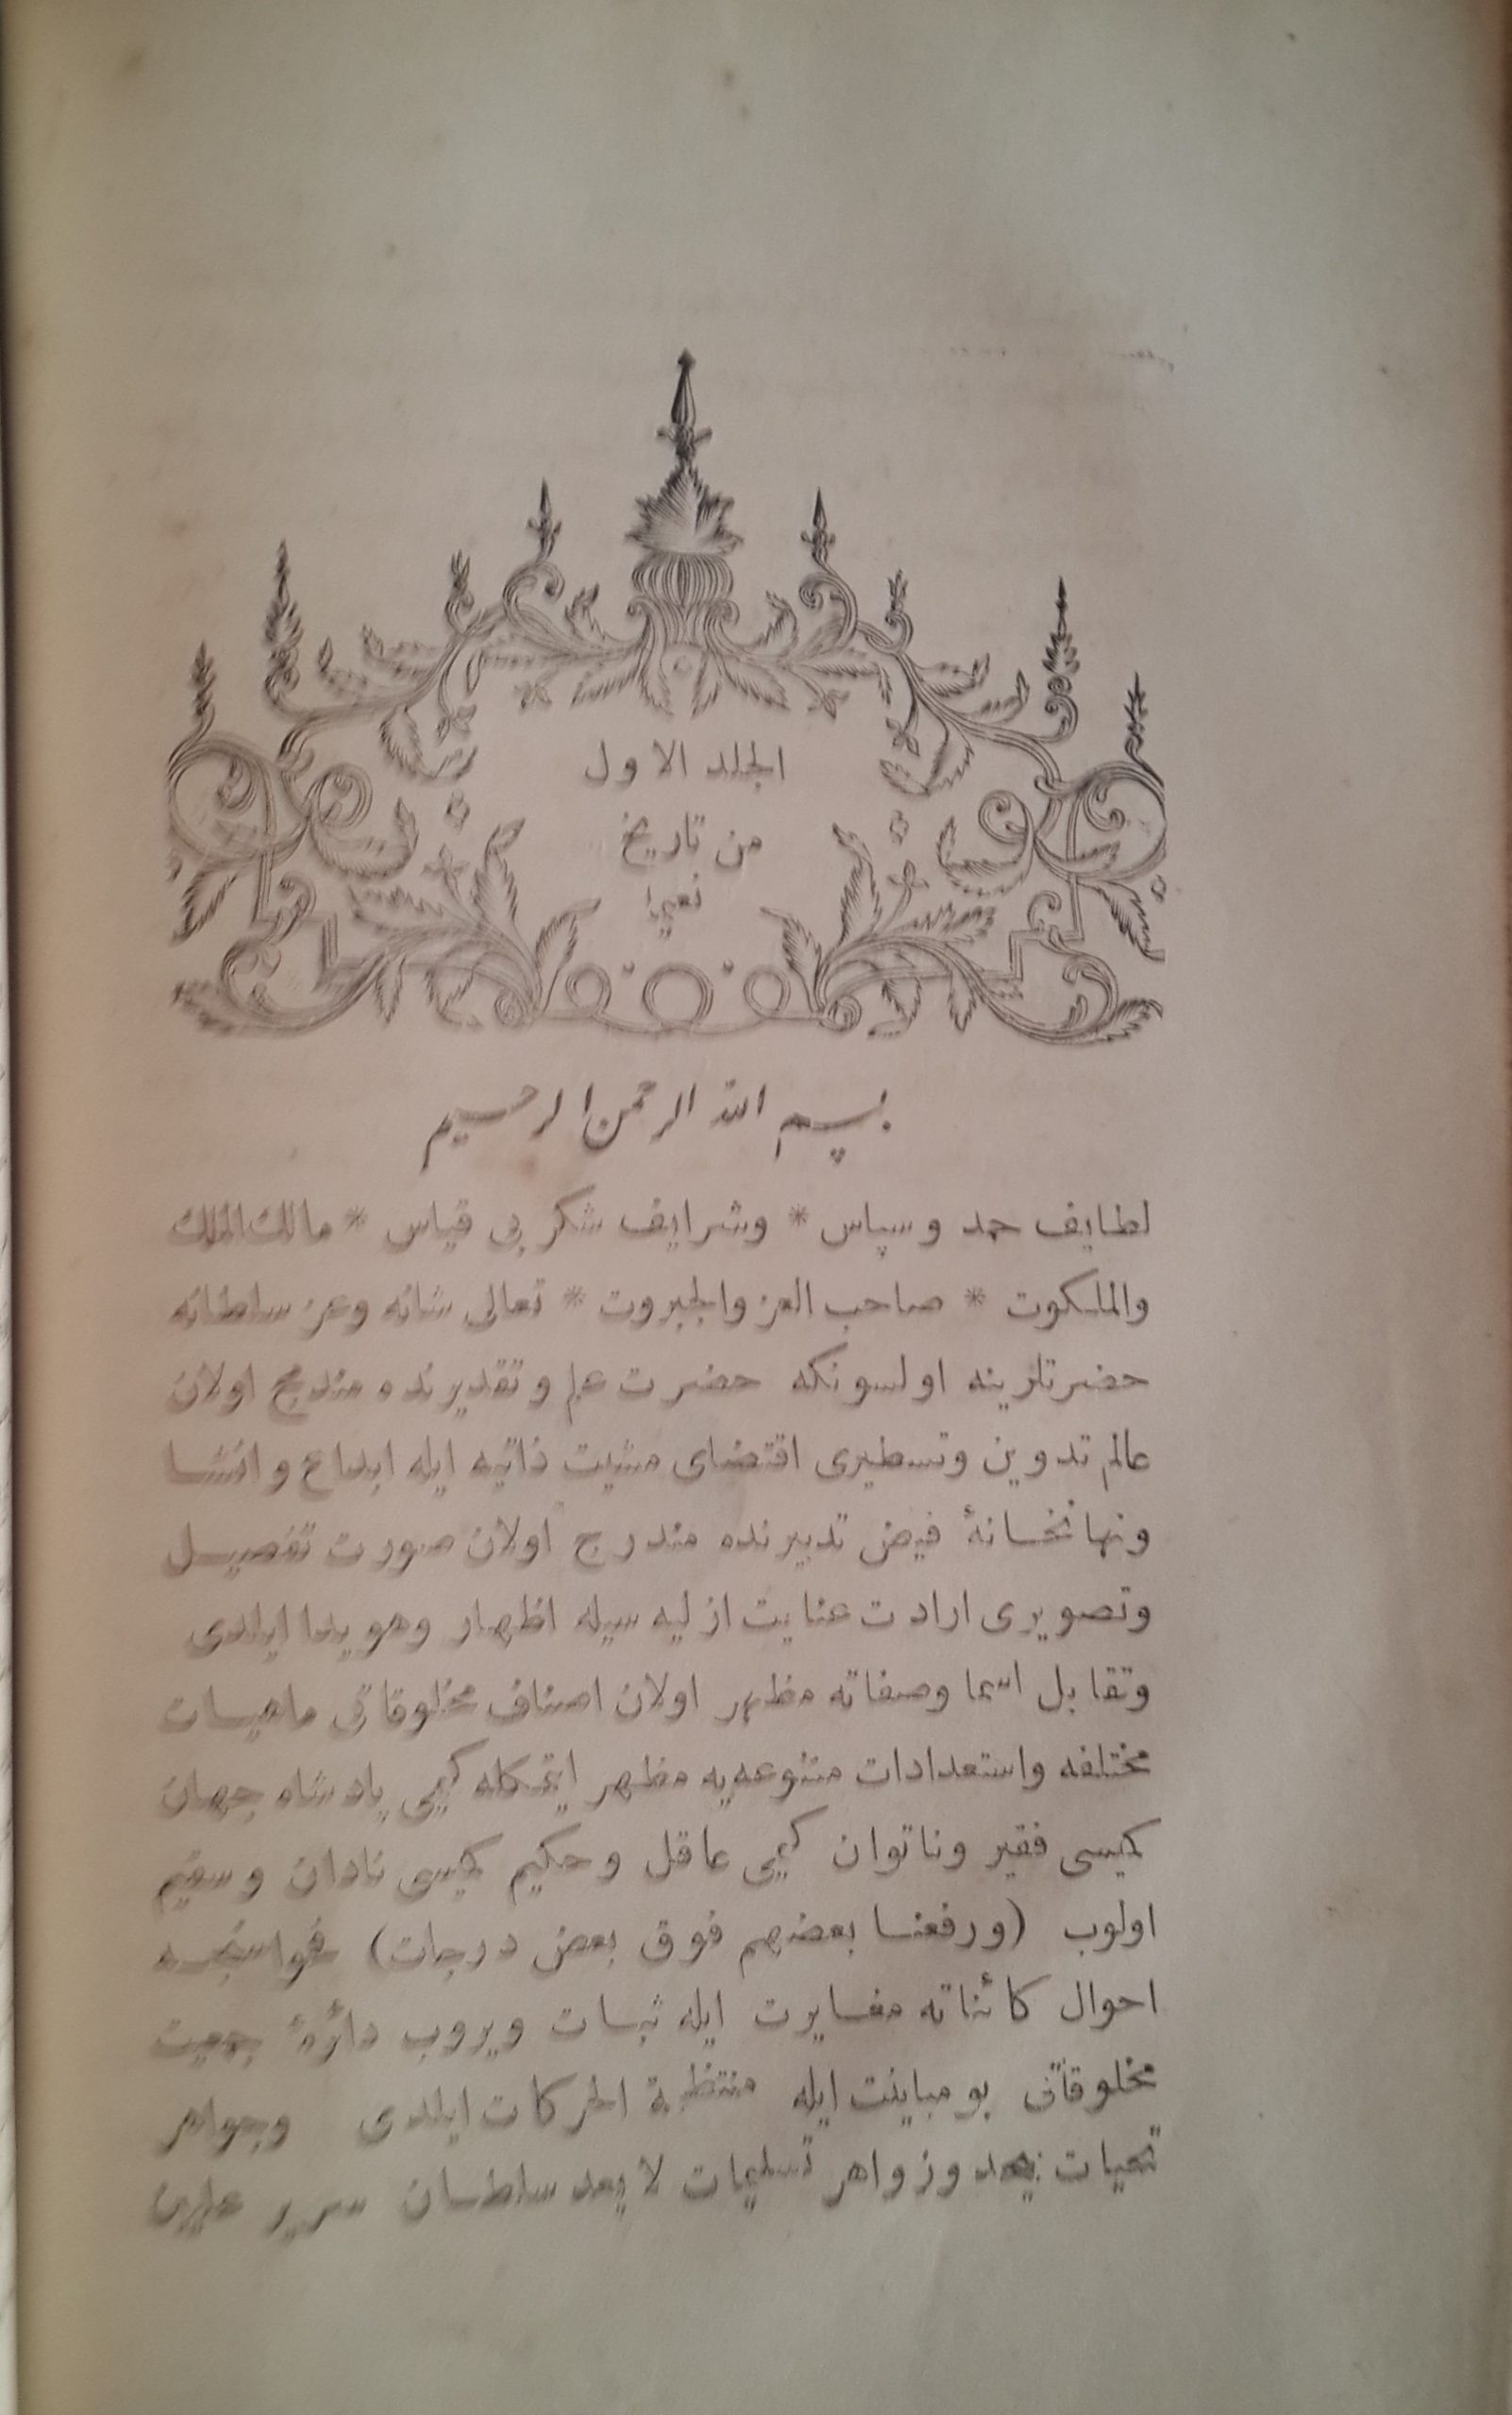 الجلد الاول
من تاريخ
نعيما
بسم الله الرحمن الرحيم
لطايف حمد وسپاس * وشرايف شكر بى قياس * مالك الملك
والملكوت * صاحب العز والجبروت * تعالى شانه وعز سلطانه
حضرتلرينه اولسونكه حضرت علم وتقديرنده مندمج اولان
عالم تدوين وتسطيرى اقتضاى مشيت ذاتيه ايله ابداع وانشا
ونهانخانهٔ فيض تدبيرنده مندرج اولان صورت تفصيل
وتصويرى ارادت عنايت ازليه سيله اظهار وهويدا ايلدى
وتقابل اسما وصفاته مظهر اولان اصناف مخلوقاتى ماهيات
مختلفه واستعدادات متنوعه يه مظهر ايتمكله كيمى پادشاه جهان
كيمسى فقير وناتوان كيمى عاقل وحكيم كيمسى نادان وسقيم
اولوب (ورفعنا بعضهم فوق بعض درجات) فحواسنجه
احوال كائناته مغايرت ايله ثبات ويروب دائرهٔ جمعيت
مخلوقاتى بو مباينت ايله منتظمة الحركات ايلدى وجواهر
تحيات بيحد وزواهر تسليمات لايعد سلطان سرير عليين